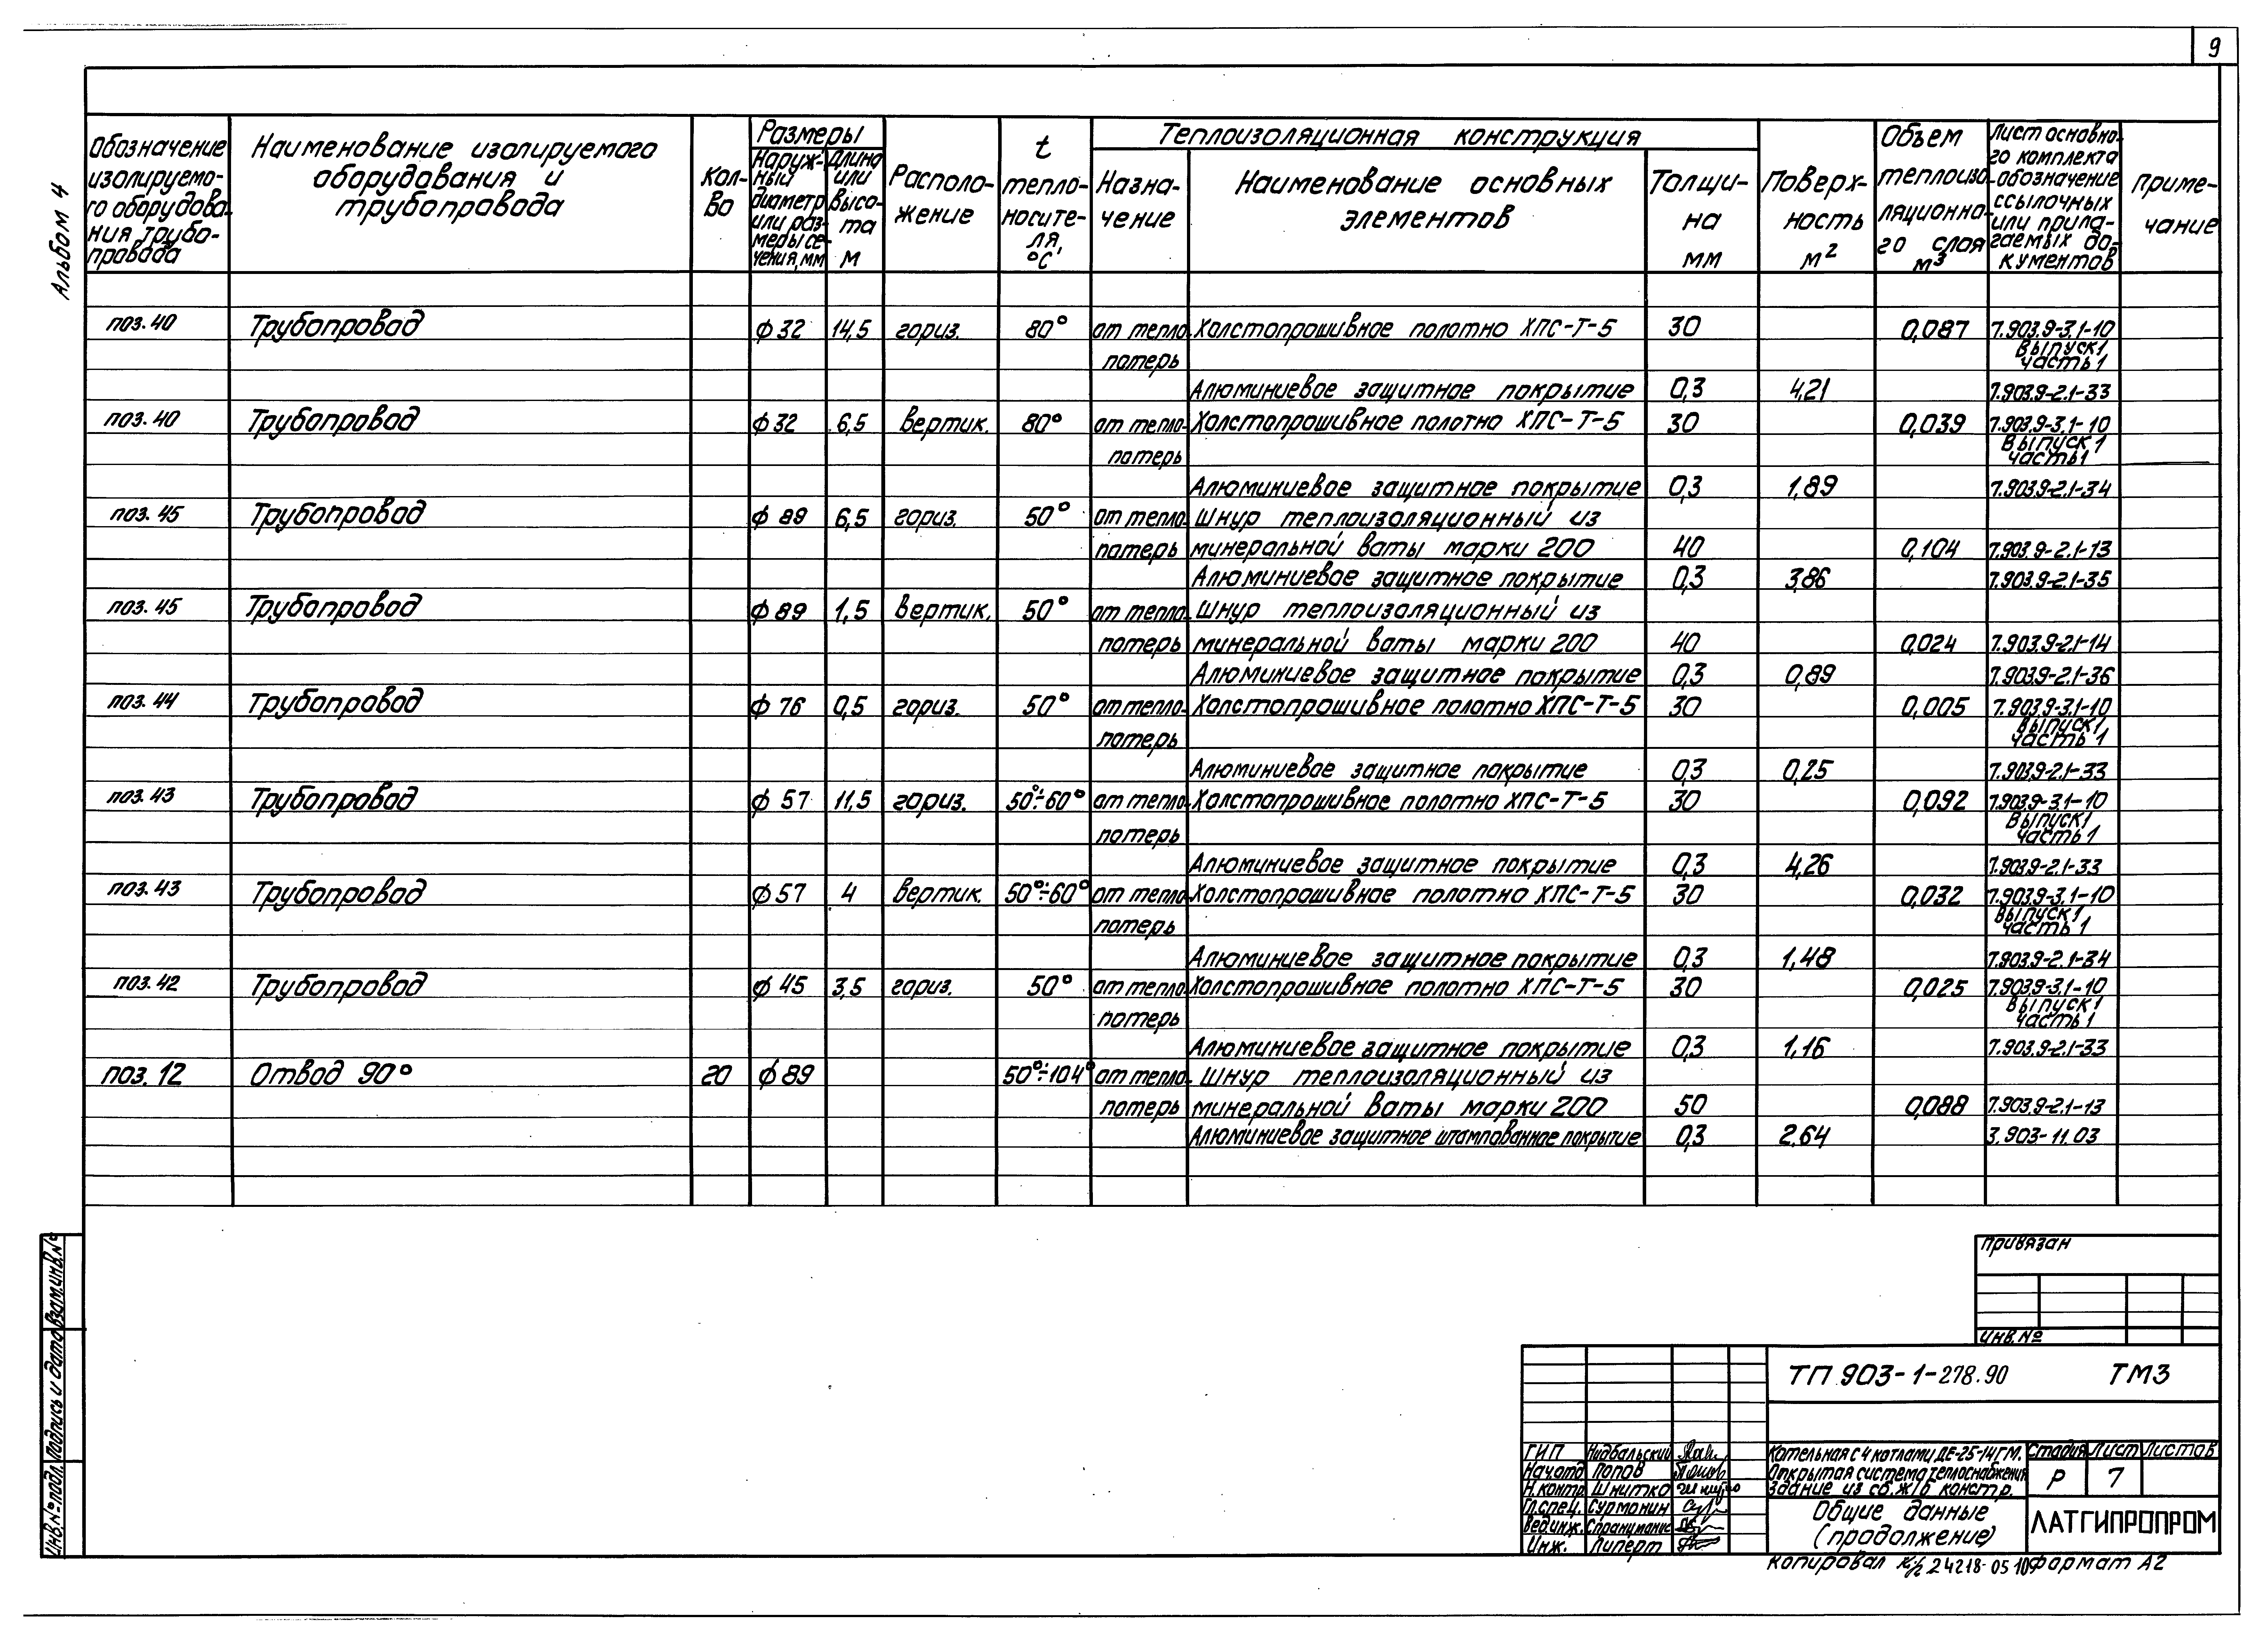 9
Альбом 4
Обозначение изолируемо- го оборудова- ния, трубо- провода
Наименование изолируемого оборудования и трубопровода
Кол- во
Размеры
Наруж- ный диаметр или раз- меры се- чения, мм
Длина или высо- та м
Располо- жение
t тепло- носите- ля, °С
Теплоизоляционная конструкция
Назна- чение
Наименование основных элементов
Толщи- на мм
Поверх- ность м²
Объем теплоизо- ляционно- го слоя м³
Лист основно- го комплекта обозначение ссылочных или прила- гаемых до- кументов
Приме- чание
поз. 40 Трубопровод ф 32 14,5 гориз. 80° от тепло- Холстопрошивное полотно ХПС-Т-5 30 0,087 7.903.9-3.1-10
потерь Выпуск 1 часть 1
Алюминиевое защитное покрытие 0,3 4,21 7.903.9-2.1-33
поз. 40 Трубопровод ф 32 6,5 вертик. 80° от тепло- Холстопрошивное полотно ХПС-Т-5 30 0,039 7.903.9-3.1-10
потерь Выпуск 1 часть 1
Алюминиевое защитное покрытие 0,3 1,89 7.903.9-2.1-34
поз. 45 Трубопровод ф 89 6,5 гориз. 50° от тепло- Шнур теплоизоляционный из
потерь минеральной ваты марки 200 40 0,104 7.903.9-2.1-13
Алюминиевое защитное покрытие 0,3 3,86 7.903.9-2.1-35
поз. 45 Трубопровод ф 89 1,5 вертик. 50° от тепло- Шнур теплоизоляционный из
потерь минеральной ваты марки 200 40 0,024 7.903.9-2.1-14
Алюминиевое защитное покрытие 0,3 0,89 7.903.9-2.1-36
поз. 44 Трубопровод ф 76 0,5 гориз. 50° от тепло- Холстопрошивное полотно ХПС-Т-5 30 0,005 7.903.9-3.1-10
потерь Выпуск 1 часть 1
Алюминиевое защитное покрытие 0,3 0,25 7.903.9-2.1-33
поз. 43 Трубопровод ф 57 11,5 гориз. 50°÷60° от тепло- Холстопрошивное полотно ХПС-Т-5 30 0,092 7.903.9-3.1-10
потерь Выпуск 1 часть 1
Алюминиевое защитное покрытие 0,3 4,26 7.903.9-2.1-33
поз. 43 Трубопровод ф 57 4 вертик. 50°÷60° от тепло- Холстопрошивное полотно ХПС-Т-5 30 0,032 7.903.9-3.1-10
потерь Выпуск 1 часть 1
Алюминиевое защитное покрытие 0,3 1,48 7.903.9-2.1-34
поз. 42 Трубопровод ф 45 3,5 гориз. 50° от тепло- Холстопрошивное полотно ХПС-Т-5 30 0,025 7.903.9-3.1-10
потерь Выпуск 1 часть 1
Алюминиевое защитное покрытие 0,3 1,16 7.903.9-2.1-33
поз. 12 Отвод 90° 20 ф 89 50°÷104° от тепло- Шнур теплоизоляционный из
потерь минеральной ваты марки 200 50 0,088 7.903.9-2.1-13
Алюминиевое защитное штампованное покрытие 0,3 2,64 3.903-11.03
Инв. № подл. Подпись и дата Взам. инв. №
Привязан
Инв. №
ТП 903-1-278.90 ТМ3
ГИП Нидбальский
Нач.отд Попов
Н.контр. Шнитко
Гл.спец. Сурмонин
Вед.инж.
Инж. Липерт
Котельная с 4 котлами ДЕ-25-14ГМ.
Открытая система теплоснабжения
Здание из сб. ж/б констр.
Стадия Лист Листов
Р 7
Общие данные
(продолжение)
ЛАТГИПРОПРОМ
Копировал 24218-05 10 Формат А2